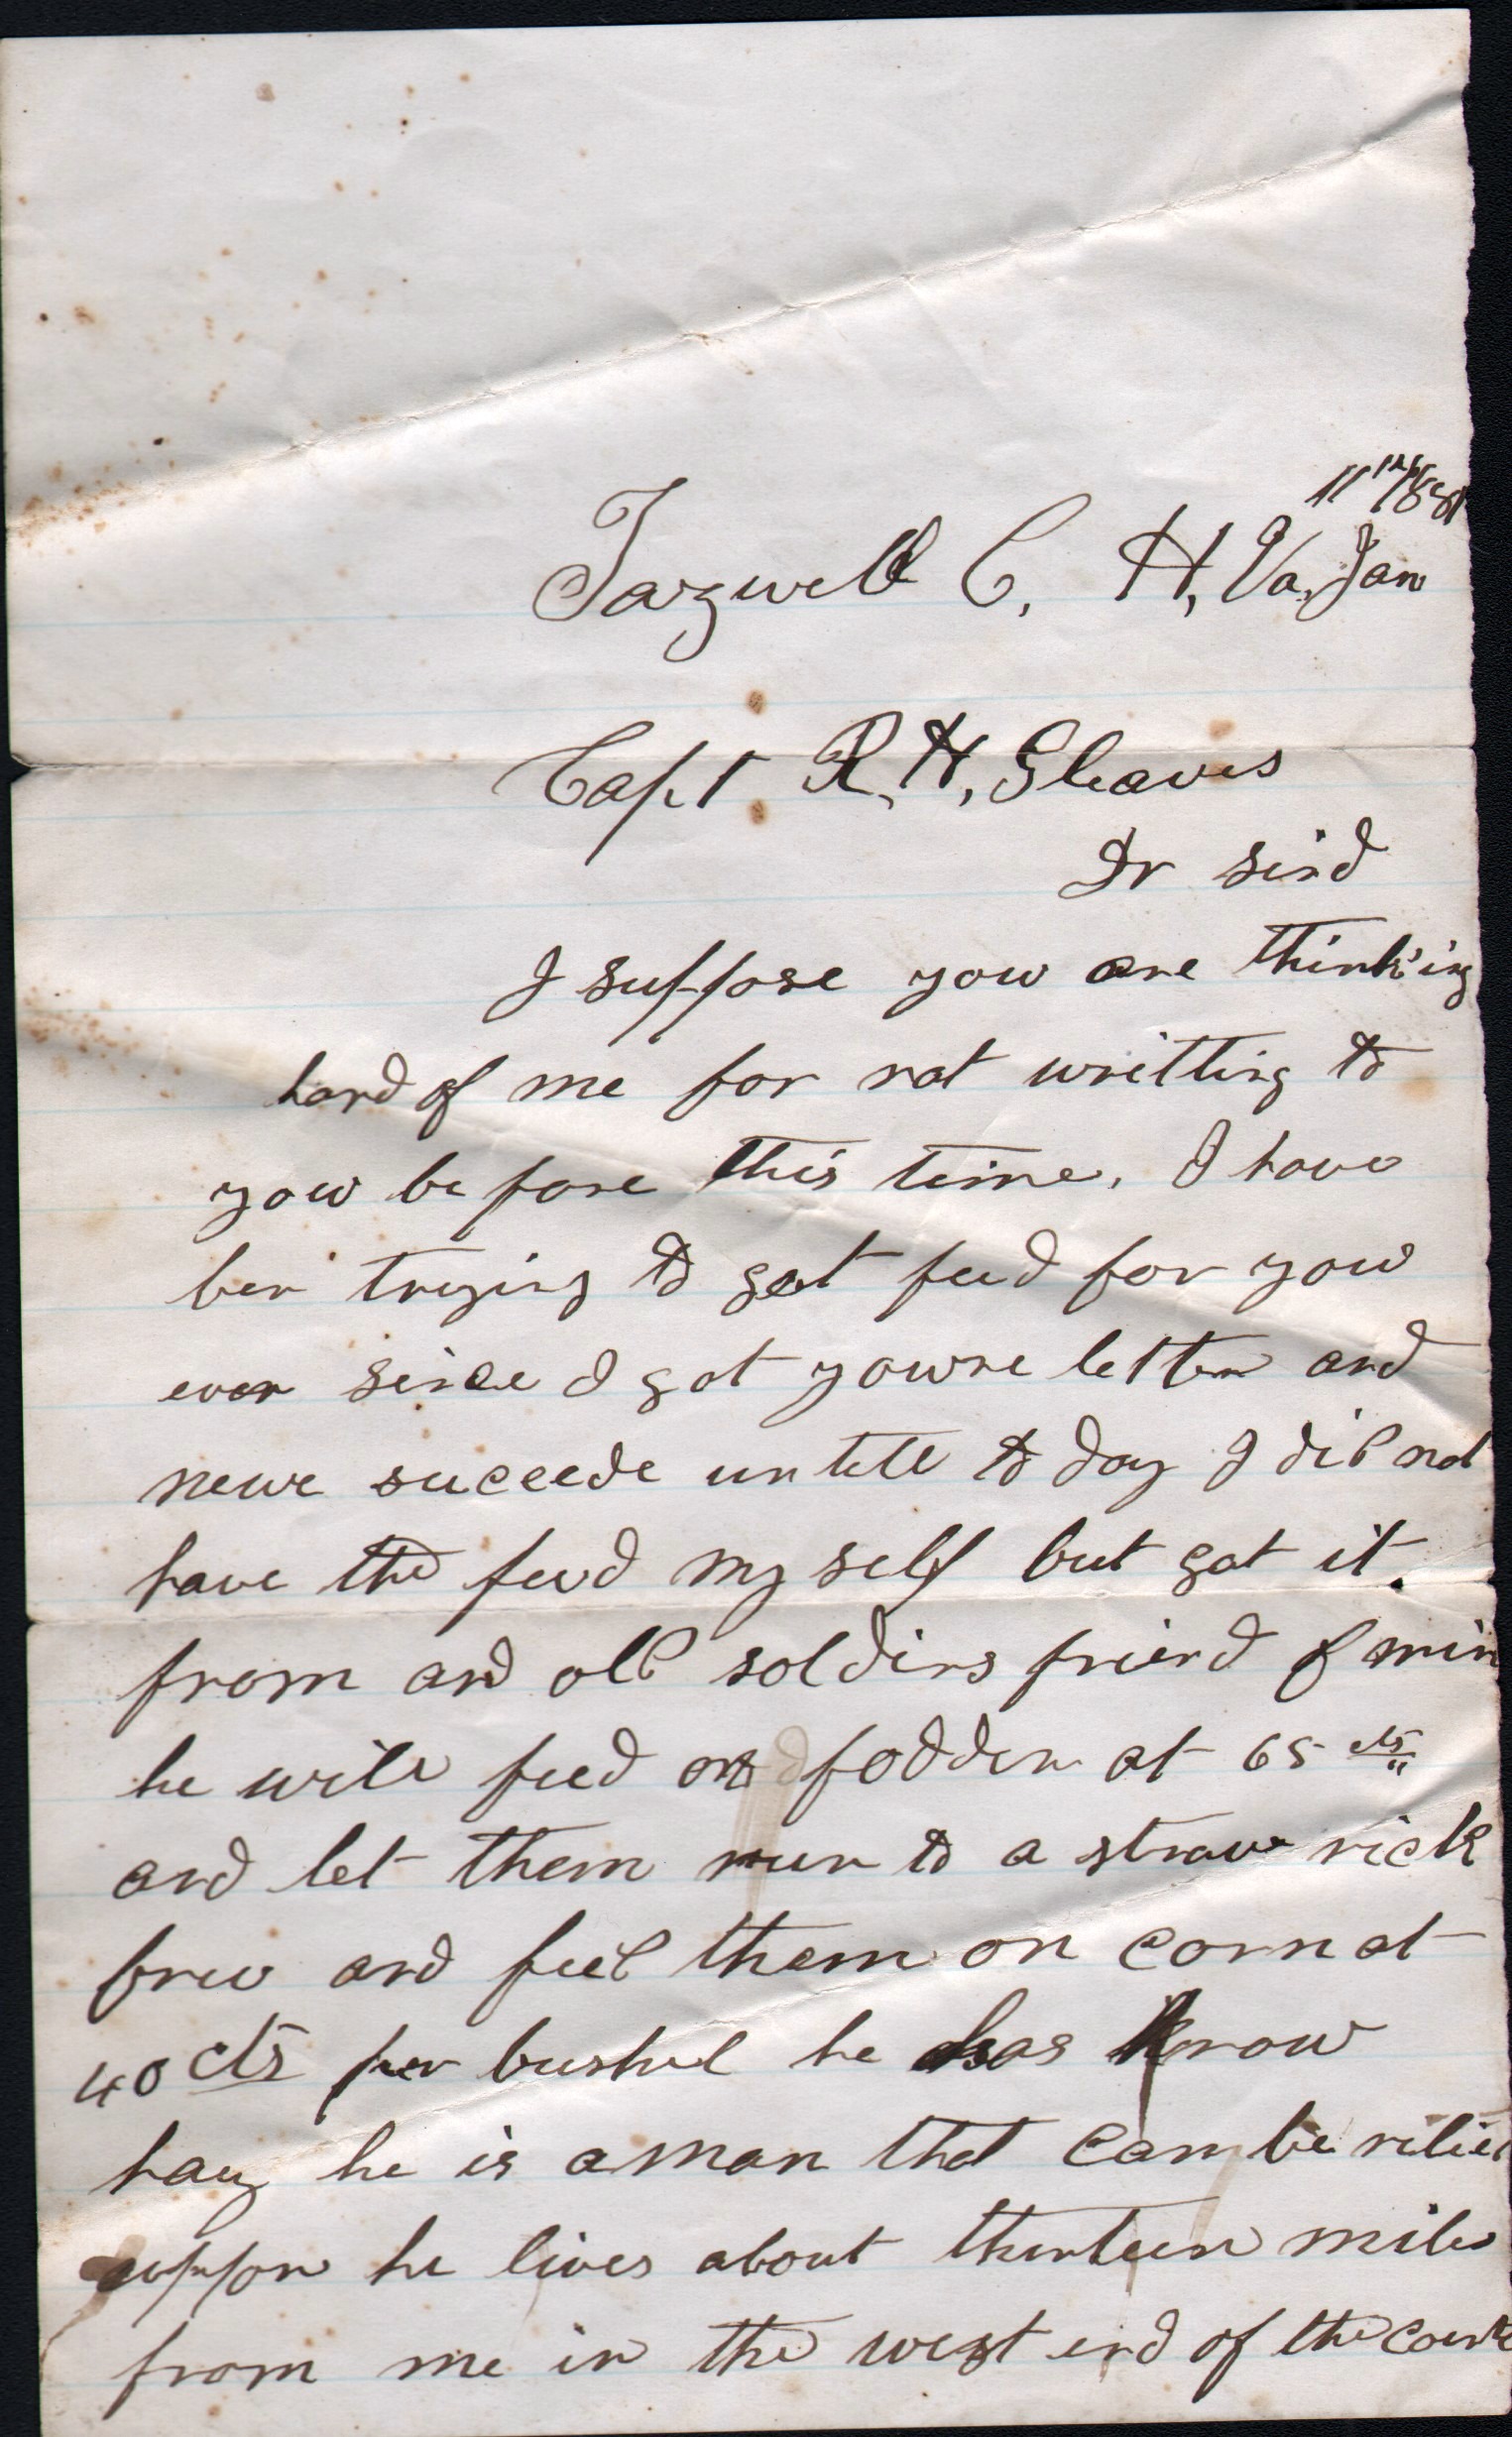 11th/1881
Tazwell C. H, Va, Jan
Capt R. H, Gleaves
Dr sird
I suppose yow are thinking
hard of me for not writting to
yow before this time. I have
ben trying to get feed for yow
ever since I got yowre letter and
neve succeede untell to day I did not
have the feed my self but got it.
from and old soldirs friend of min
he will feed on fodder at 65 cts
and let them run to a straw rick
free and feed them on corn at
40 cts per bushel he has know
hay he is a man that can be relied
uppon he lives about thirteen miles
from me in the west end of the